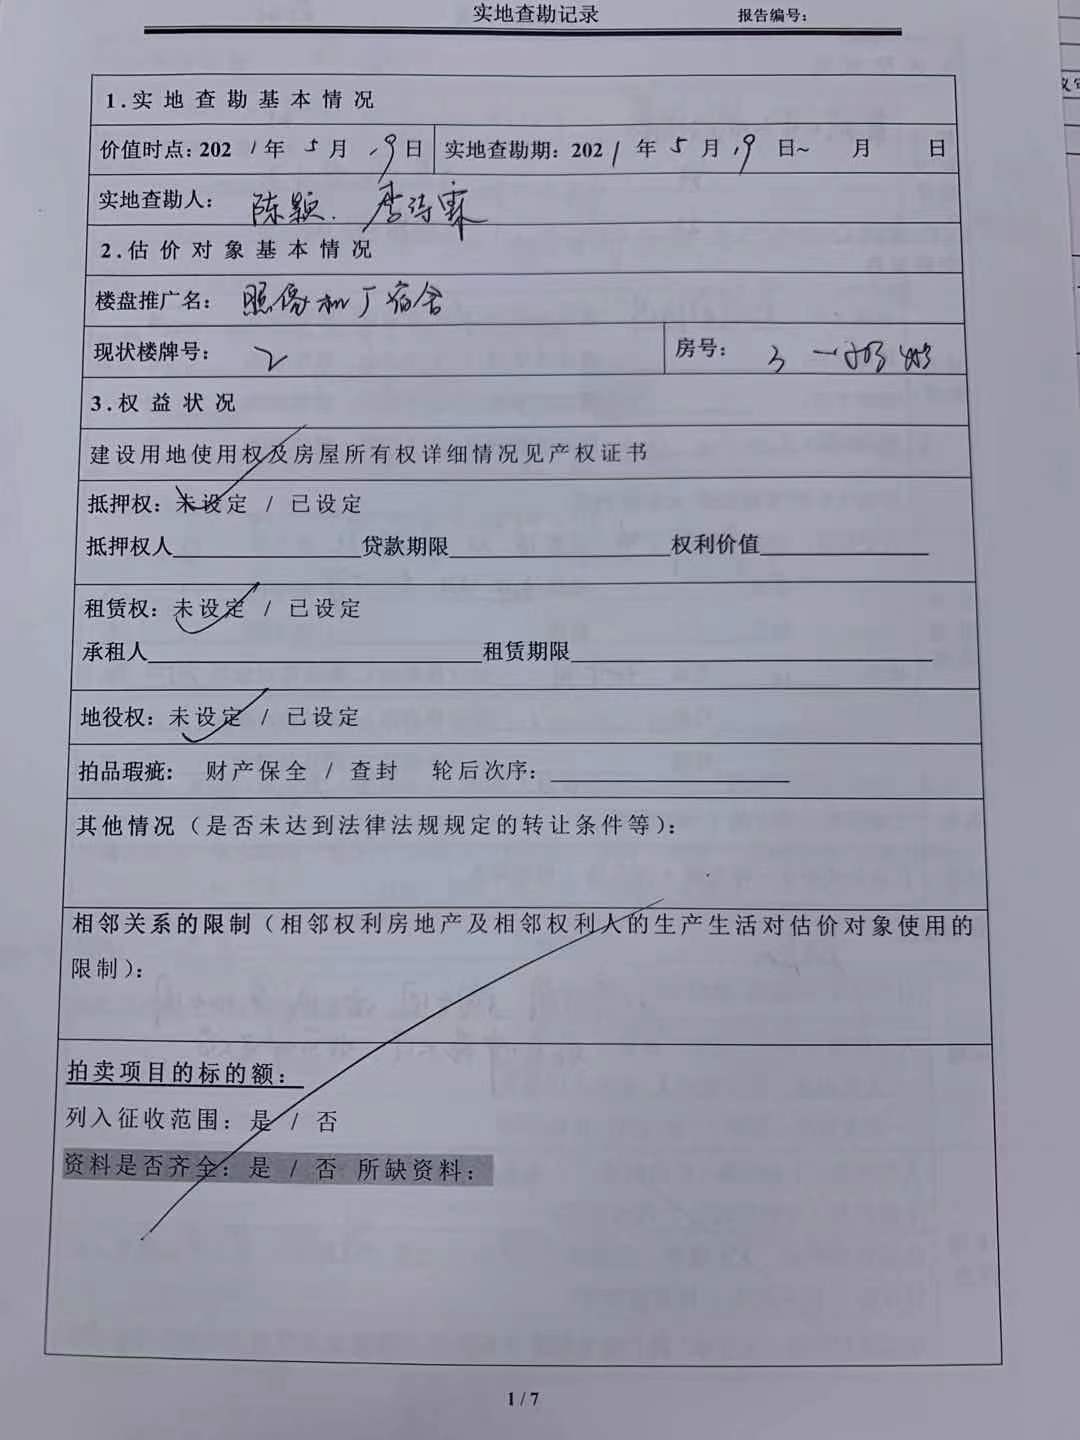 实地查勘记录 报告编号：
1.实地查勘基本情况
价值时点：2021年5月19日 实地查勘期：2021年5月19日~ 月 日
实地查勘人：陈颖、李诗霖
2.估价对象基本情况
楼盘推广名：照像机厂宿舍
现状楼牌号：2 房号：3一
3.权益状况
建设用地使用权及房屋所有权详细情况见产权证书
抵押权：未设定 / 已设定
抵押权人 贷款期限 权利价值
租赁权：未设定 / 已设定
承租人 租赁期限
地役权：未设定 / 已设定
拍品瑕疵： 财产保全 / 查封 轮后次序：
其他情况（是否未达到法律法规规定的转让条件等）：
相邻关系的限制（相邻权利房地产及相邻权利人的生产生活对估价对象使用的
限制）：
拍卖项目的标的额：
列入征收范围：是 / 否
资料是否齐全：是 / 否 所缺资料：
1 / 7